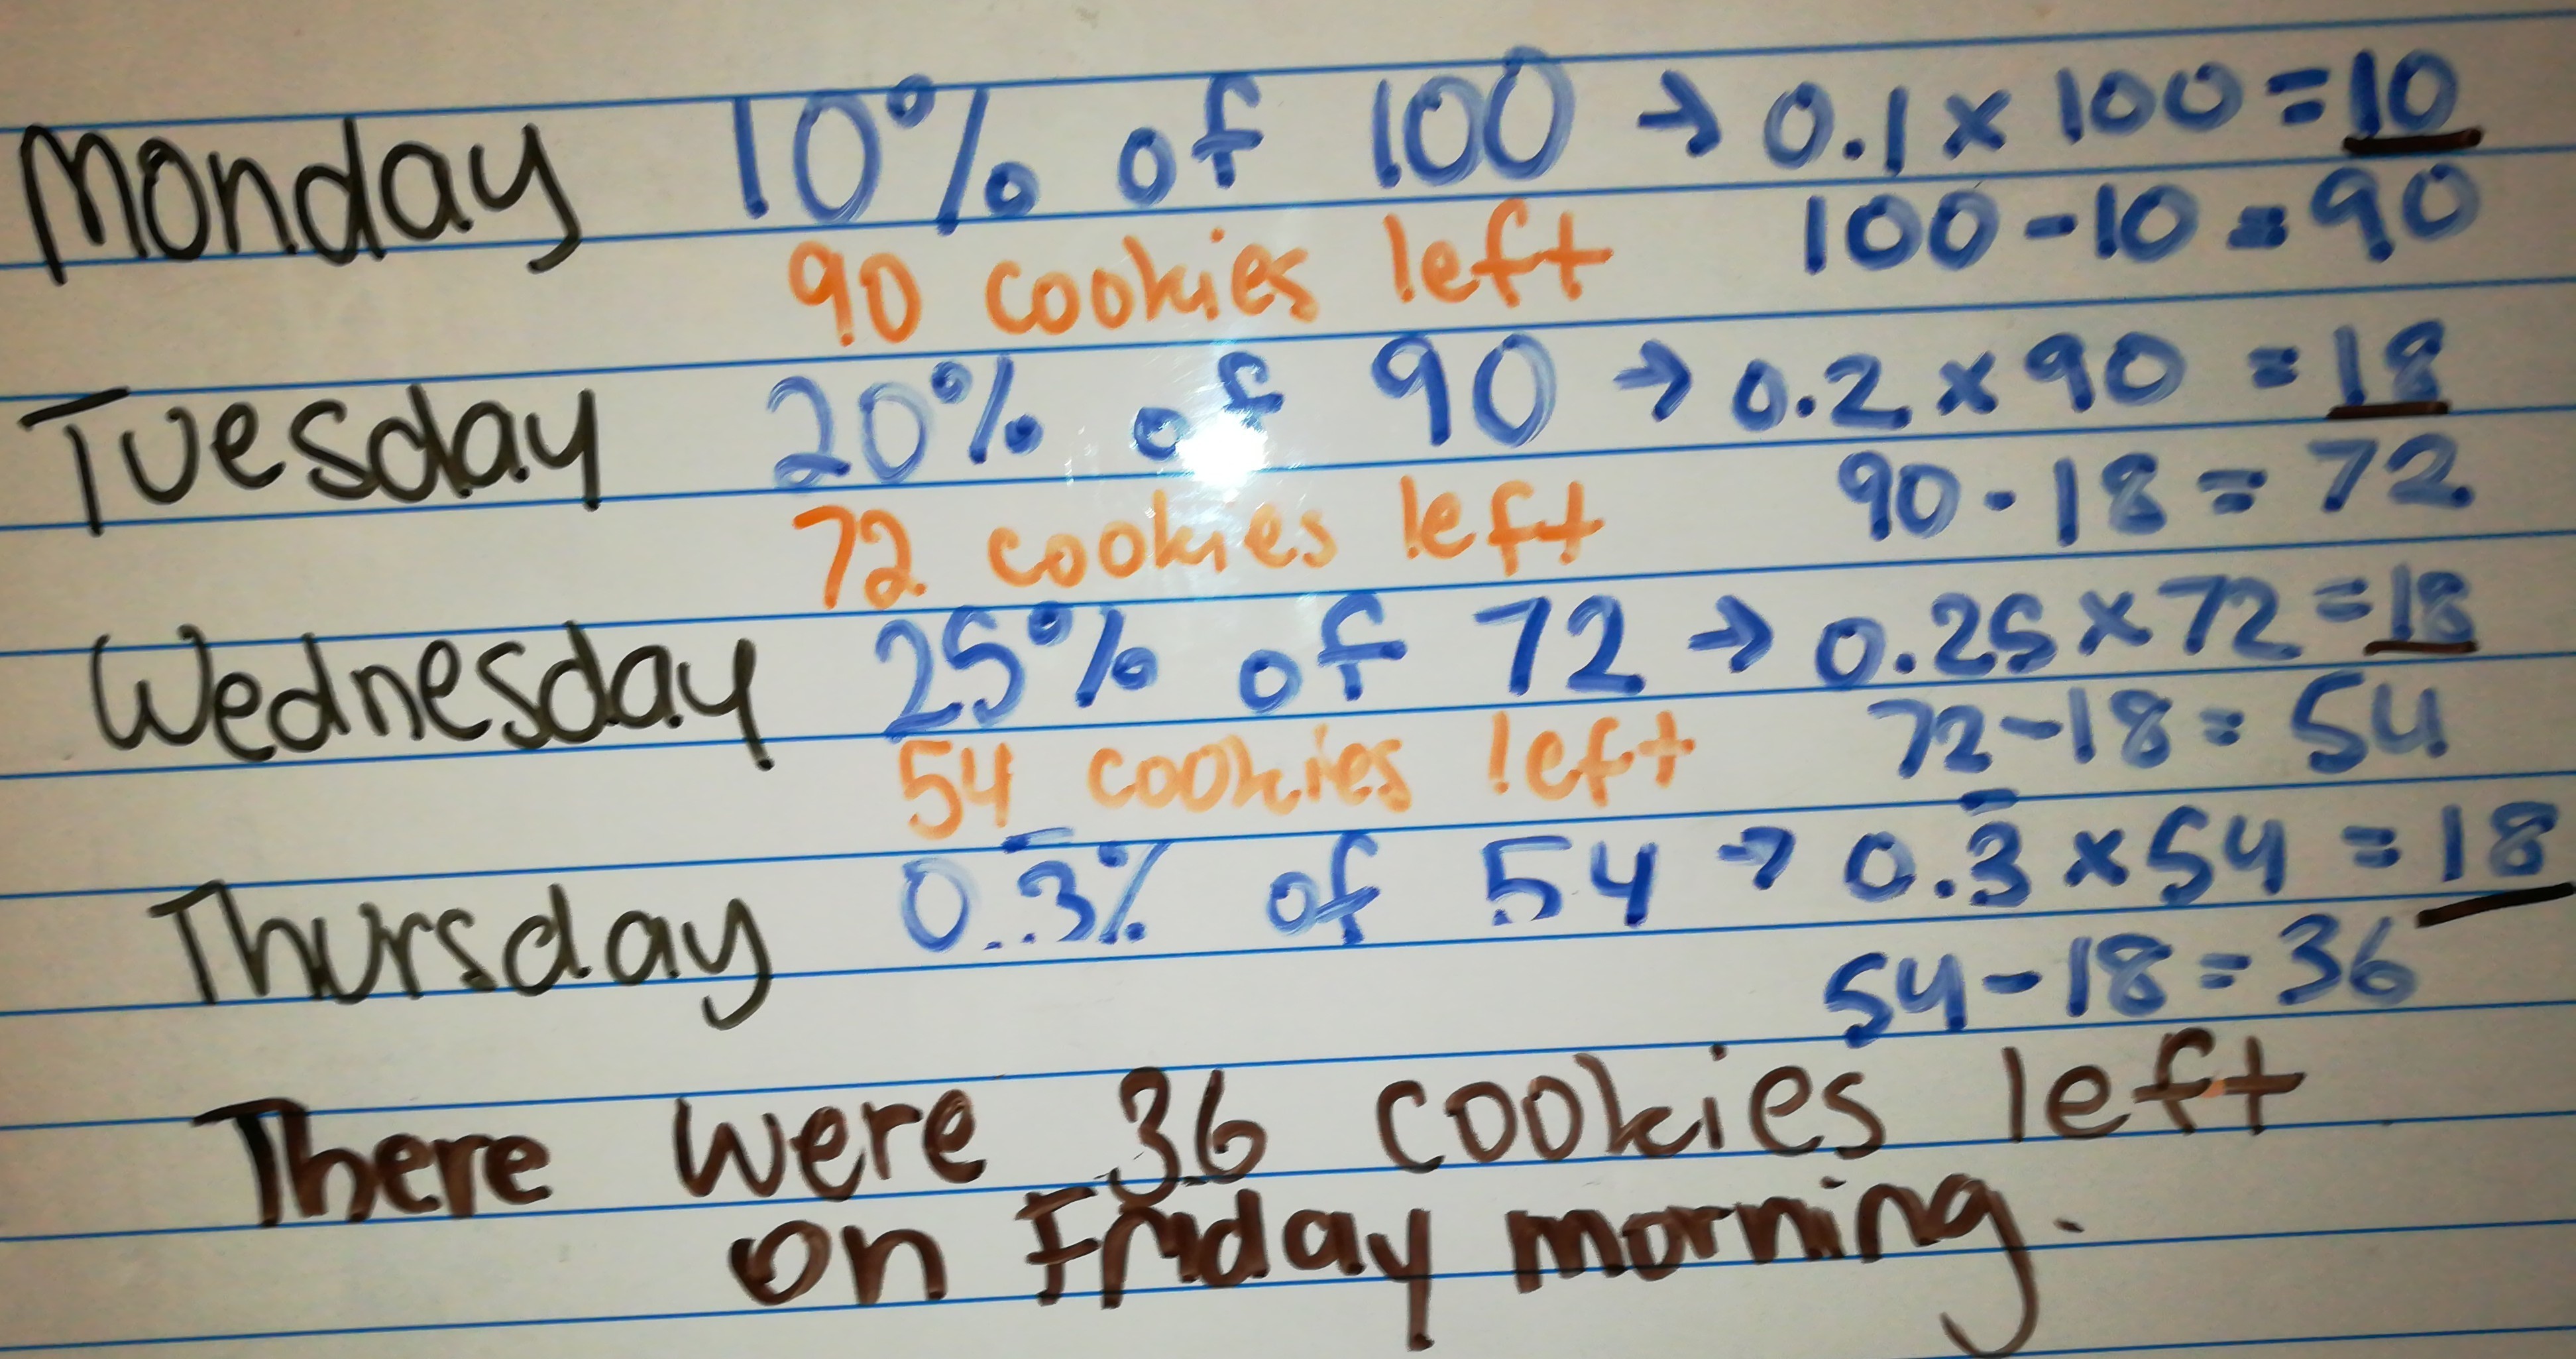 Monday 10% of 100 → 0.1 × 100 = 10
90 cookies left 100 - 10 = 90
Tuesday 20% of 90 → 0.2 × 90 = 18
72 cookies left 90 - 18 = 72
Wednesday 25% of 72 → 0.25 × 72 = 18
54 cookies left 72 - 18 = 54
Thursday 0.3̅% of 54 → 0.3̅ × 54 = 18
54 - 18 = 36
There were 36 cookies left
on Friday morning.